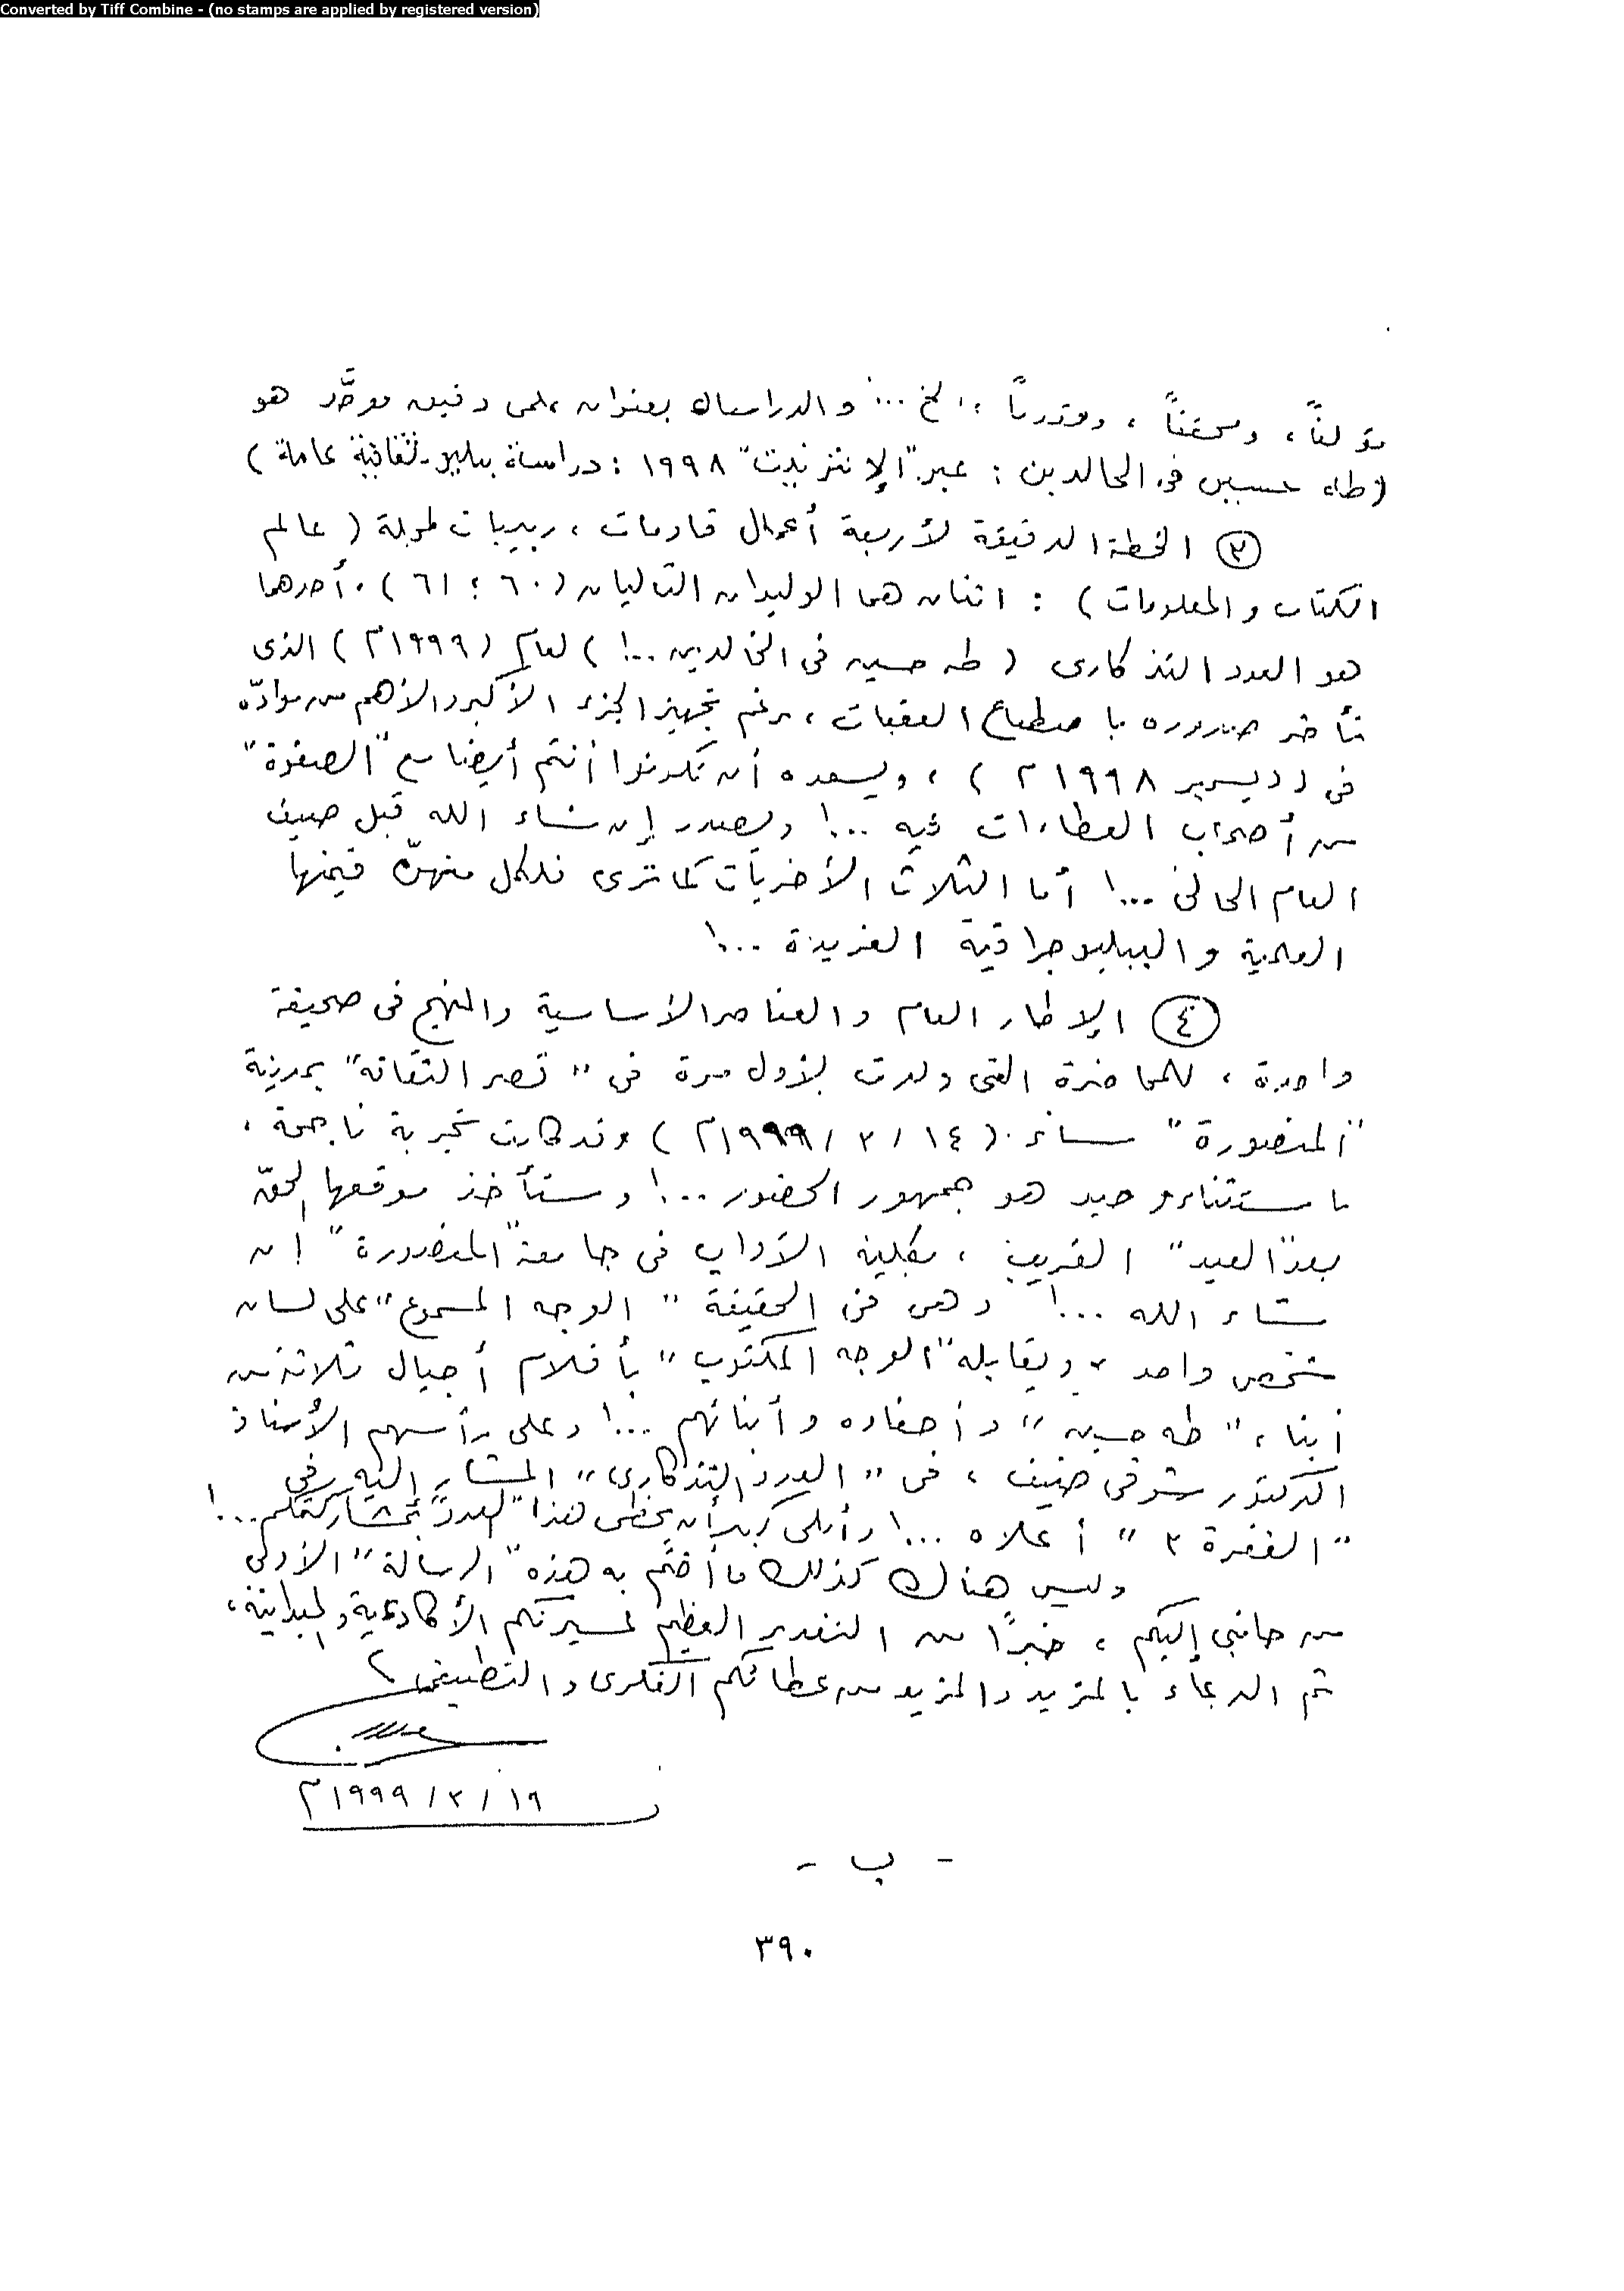 Converted by Tiff Combine - (no stamps are applied by registered version)
مؤلفاً، ومحققاً، ومقدماً، الخ ... والدراسات بعنوان علمى دقيق موحَّد هو
(طه حسين فى الخالدين : عبر "الإنترنيت" ١٩٩٨ : دراسة ببليو-ثقافية عامة)
(٣) الخطة الدقيقة لأربعة أعمال قادمات، (عالم
الكتاب والمعلومات) : اثنان هما الوليدان التاليان (٦٠ ؛ ٦١). أحدهما
هو العدد التذكارى (طه حسين فى الخالدين ..!) لعام (١٩٩٩م) الذى
تأخر صدوره باصطناع العقبات، رغم تجهيز الجزء الأكبر والأهم من موادّه
فى (ديسمبر ١٩٩٨م)، ويسعده أن تكونوا أنتم أيضا مع "الصفوة"
من أصحاب العطاءات فيه ...! ويصدر إن شاء الله قبل صيف
العام الحالى ...! أما الثلاث الأخريات كما ترى فلكل منهنّ قيمتها
العلمية والببليوجرافية الفريدة ...!
(٤) الإطار العام والعناصر الأساسية والمنهج فى صحيفة
واحدة، للمحاضرة التى ولدت لأول مرة فى "قصر الثقافة" بمدينة
"المنصورة" مساء (١٤ / ٣ / ١٩٩٩م) وقد كانت تجربة ناجحة،
باستثناء وحيد هو جمهور الحضور ...! وستأخذ موقعها الحقّ
بعد "العيد" القريب، بكلية الآداب فى جامعة "المنصورة" إن
شاء الله ...! وهى فى الحقيقة "الوجه المسموع" على لسان
شخص واحد، ويقابله "الوجه المكتوب" بأقلام أجيال ثلاثة من
أبناء "طه حسين" وأحفاده وأبنائهم ...! وعلى رأسهم الأستاذ
الدكتور شوقى ضيف، فى "العدد التذكارى" المشار إليه فى
"الفقرة ٣" أعلاه ...! وأملى كبير أن يحظى هذا "العدد" بمشاركتكم ...!
وليس هناك كذلك ما أختم به هذه "الرسالة" الأولى
من جانبى إليكم، خيراً من التقدير العظيم لمسيرتكم الأكاديمية والميدانية،
ثم الدعاء بالمزيد والمزيد من عطائكم الفكرى والتطبيقى
١٦ / ٣ / ١٩٩٩م
- ب -
٣٩٠